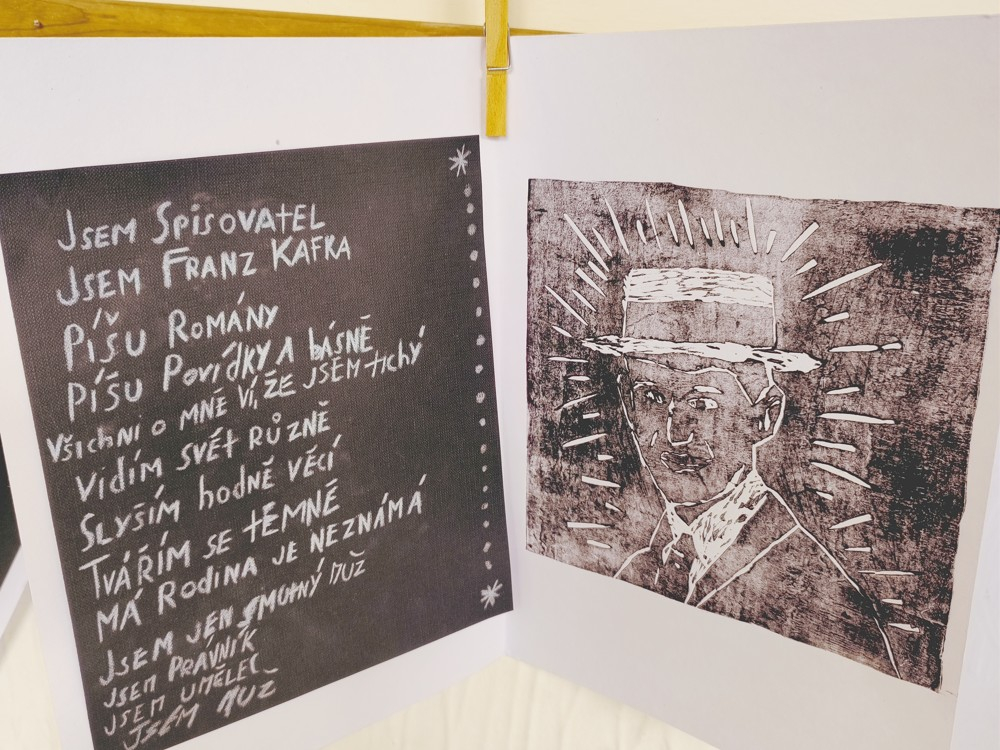 Jsem Spisovatel
Jsem Franz Kafka
Píšu Romány
Píšu Povídky a básně
Všichni o mně ví, že jsem tichý
Vidím svět různě
Slyším hodně věcí
Tvářím se temně
Má Rodina je neznámá
Jsem jen smutný muž
Jsem právník
Jsem umělec
Jsem muž